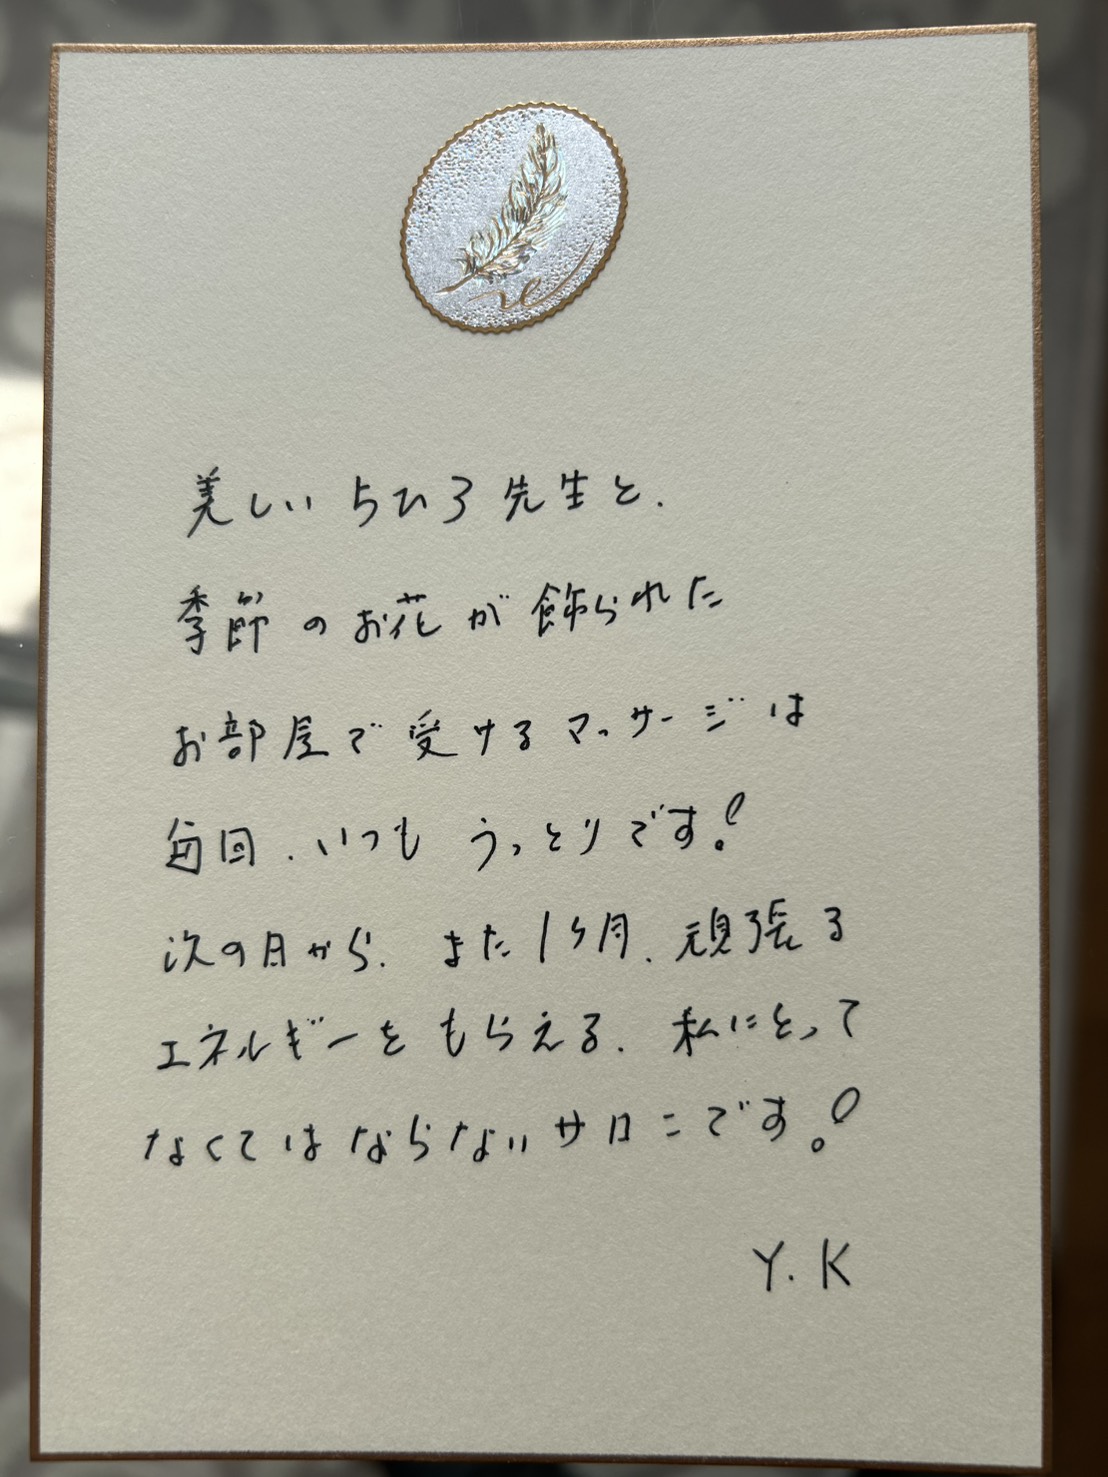 re
美しいちひろ先生と、
季節のお花が飾られた
お部屋で受けるマッサージは
毎回、いつもうっとりです!
次の日から、また1ヶ月、頑張る
エネルギーをもらえる、私にとって
なくてはならないサロンです!
Y.K